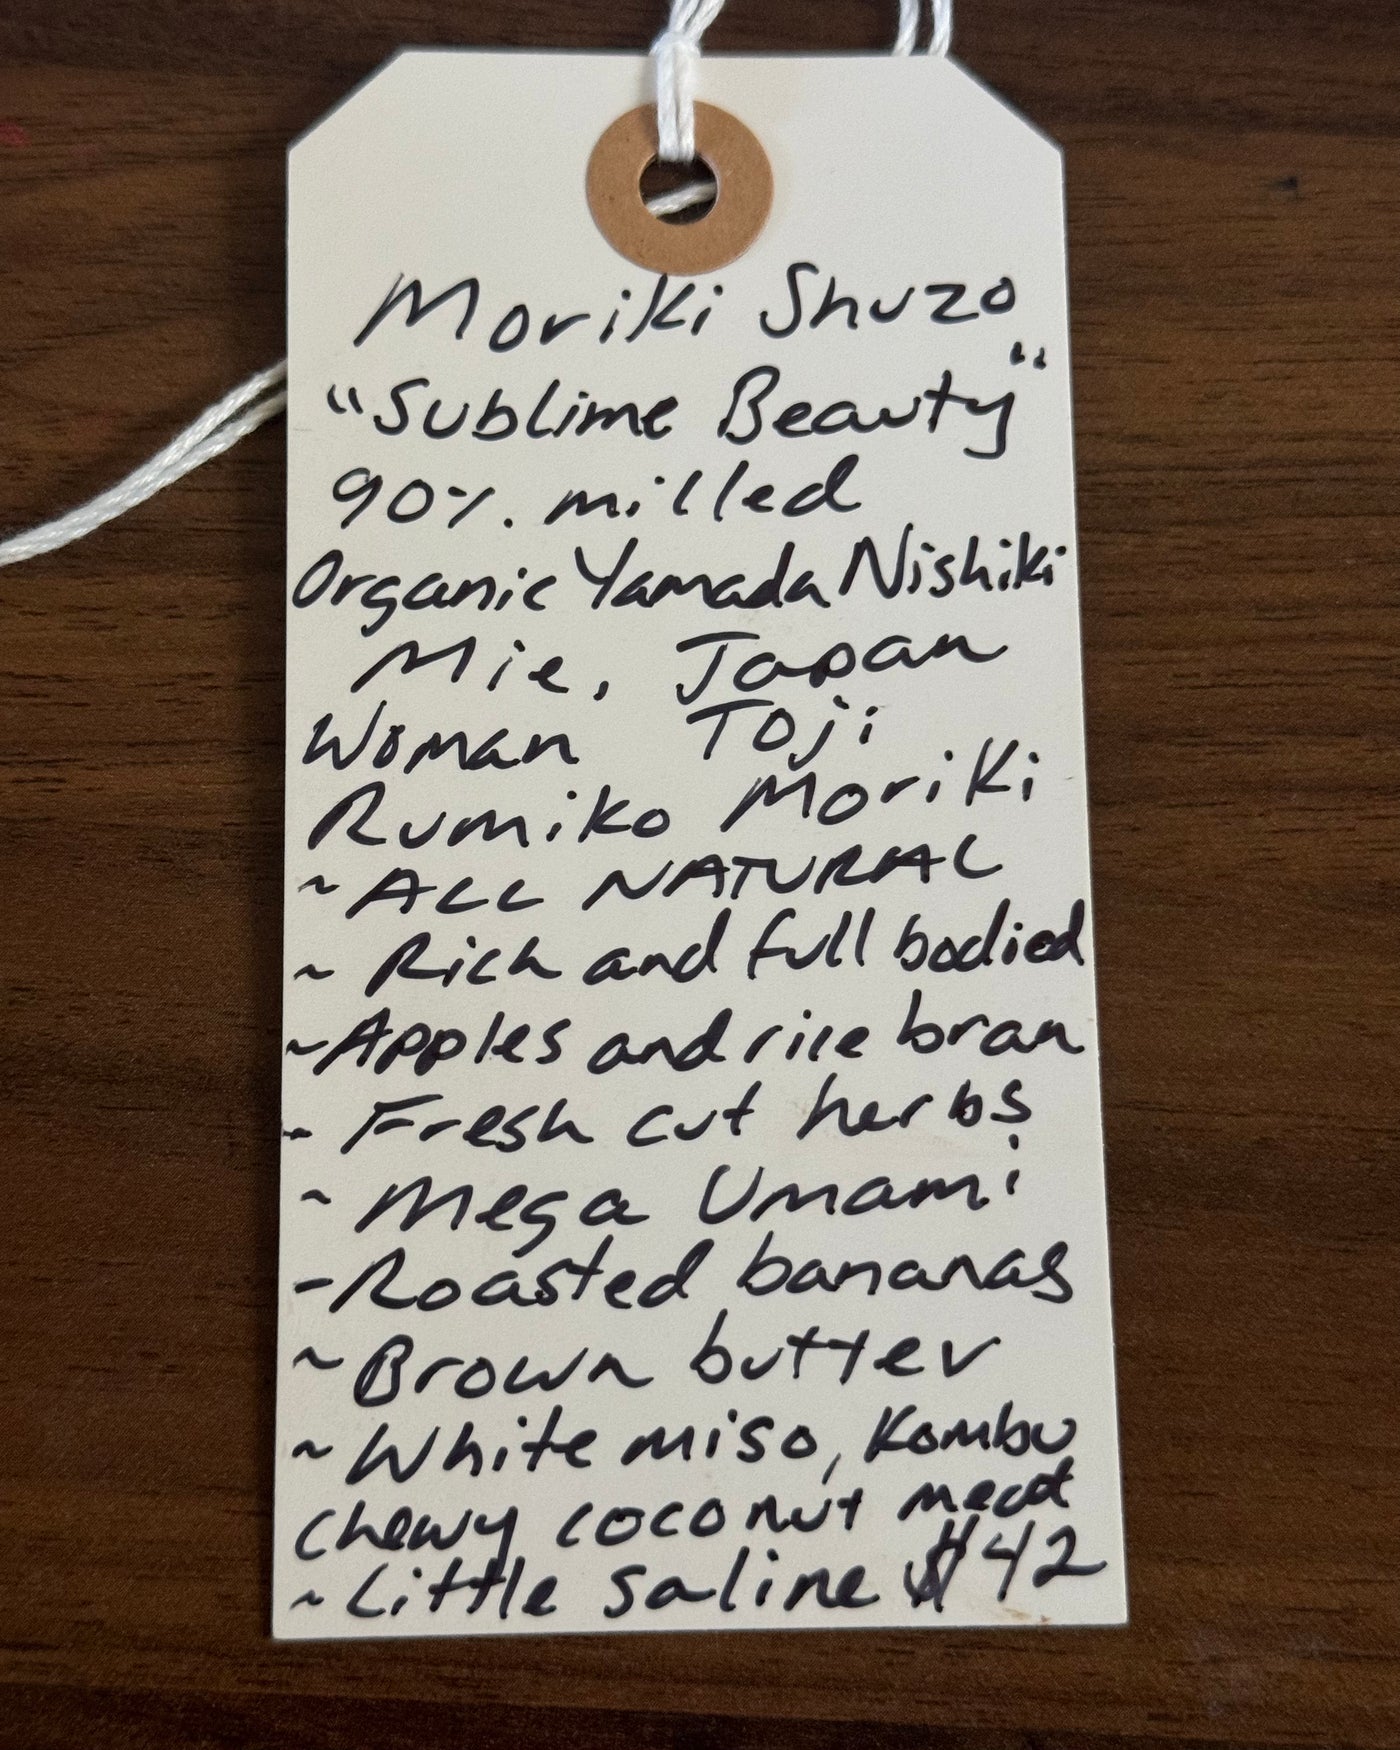 Moriki Shuzo
"Sublime Beauty"
90% milled
Organic Yamada Nishiki
Mie, Japan
Woman Toji
Rumiko Moriki
~ ALL NATURAL
~ Rich and full bodied
~ Apples and rice bran
~ Fresh cut herbs
~ Mega Umami
- Roasted bananas
~ Brown butter
~ White miso, Kombu
chewy coconut meat
~ Little saline $42